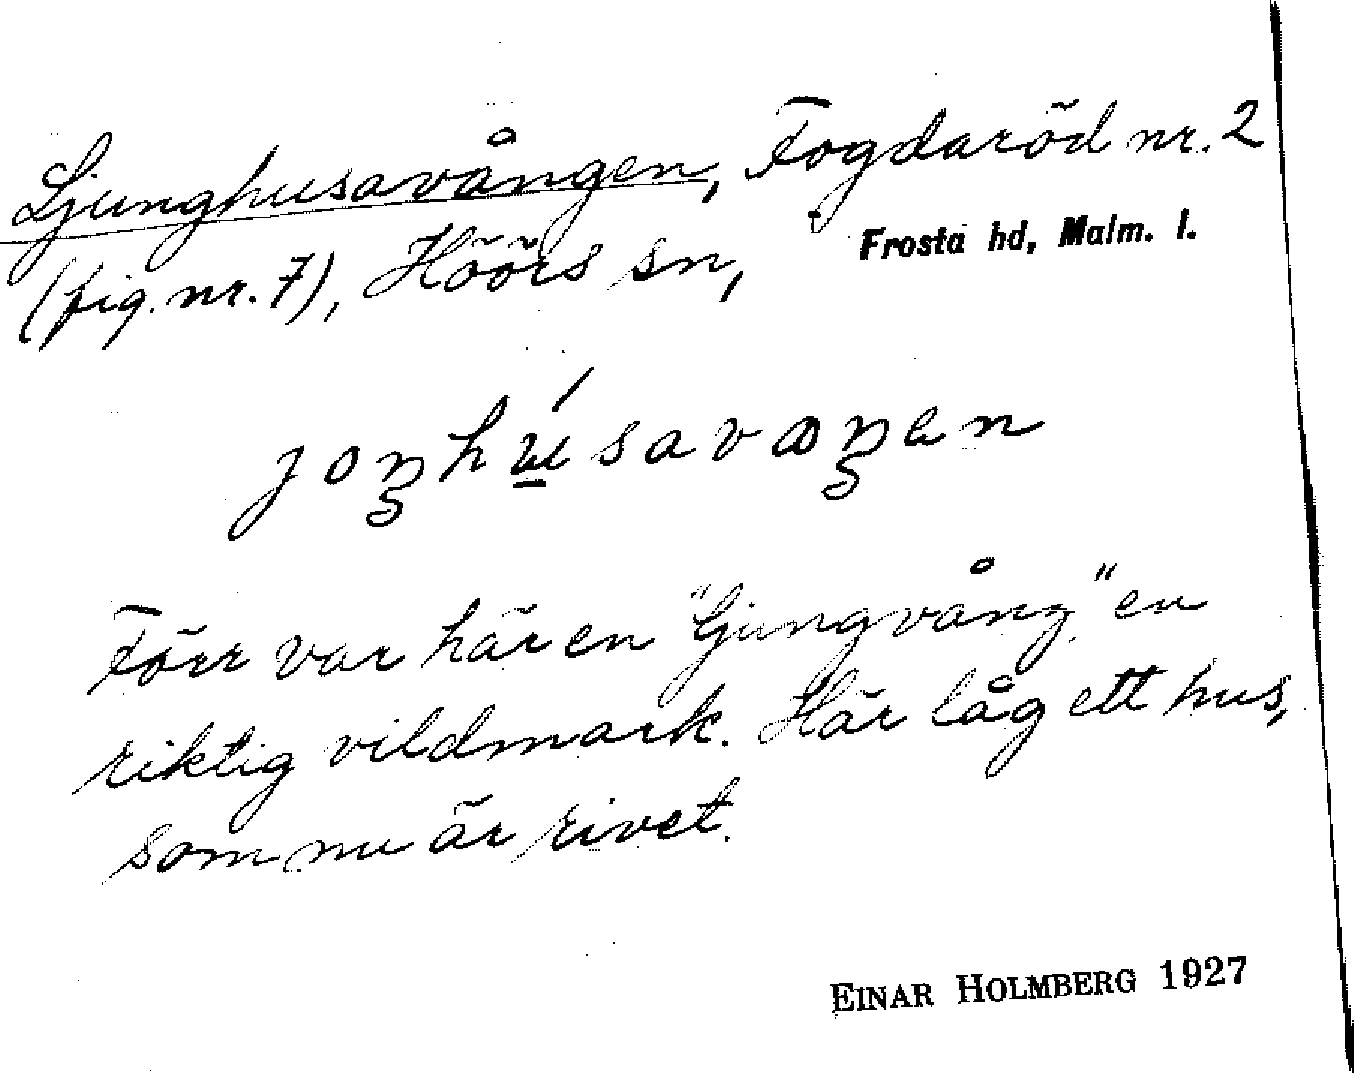 Ljunghusavången, Fogdaröd nr. 2
(fig. nr. 7), Höörs sn, Frosta hd, Malm. l.
joŋhúsavaŋen
Förr var här en "ljungvång," en
riktig vildmark. Här låg ett hus,
som nu är rivet.
EINAR HOLMBERG 1927